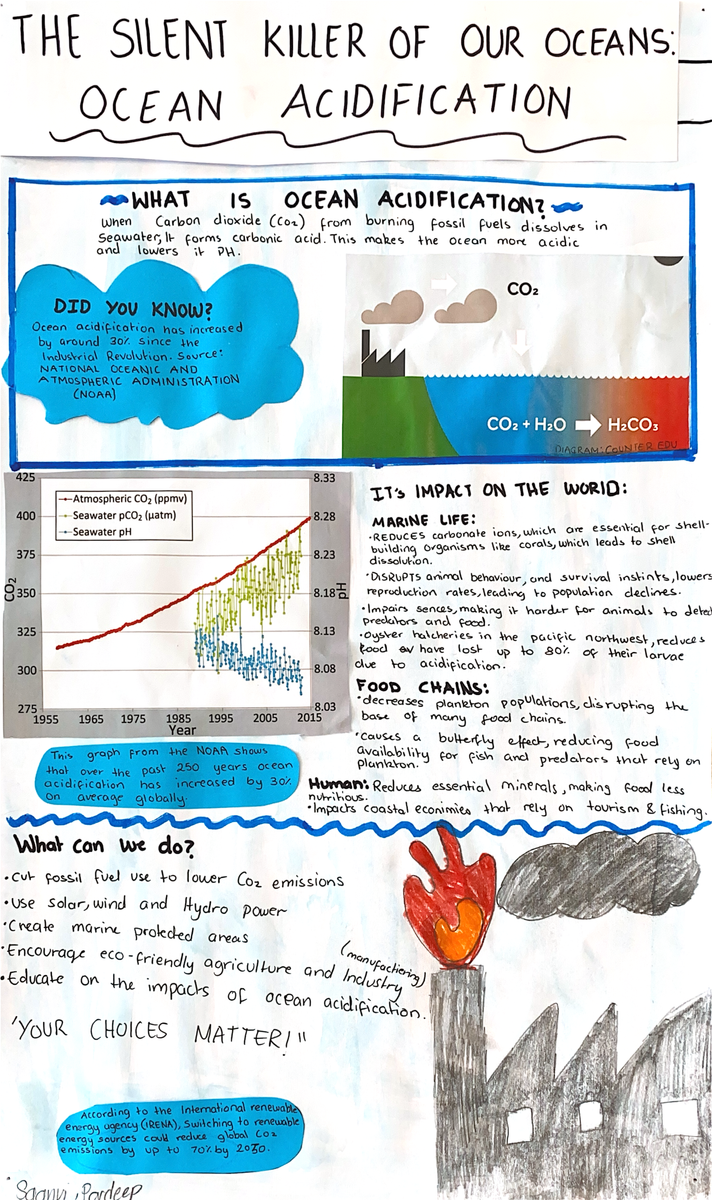 THE SILENT KILLER OF OUR OCEANS:
OCEAN ACIDIFICATION
WHAT IS OCEAN ACIDIFICATION?
When Carbon dioxide (CO₂) from burning fossil fuels dissolves in
Seawater, It forms carbonic acid. This makes the ocean more acidic
and lowers it PH.
DID YOU KNOW?
Ocean acidification has increased
by around 30% since the
Industrial Revolution. Source:
NATIONAL OCEANIC AND
ATMOSPHERIC ADMINISTRATION
(NOAA)
CO₂
CO₂ + H₂O H₂CO₃
DIAGRAM: COUNTER EDU
425
400
375
350
325
300
275
CO₂
8.33
8.28
8.23
8.18
8.13
8.08
8.03
pH
Atmospheric CO₂ (ppmv)
Seawater pCO₂ (µatm)
Seawater pH
1955 1965 1975 1985 1995 2005 2015
Year
This graph from the NOAA shows
that over the past 250 years ocean
acidification has increased by 30%
on average globally.
IT'S IMPACT ON THE WORLD:
MARINE LIFE:
•REDUCES carbonate ions, which are essential for shell-
building organisms like corals, which leads to shell
dissolution.
•DISRUPTS animal behaviour, and survival instints, lowers
reproduction rates, leading to population declines.
•Impairs sences, making it harder for animals to detec
predators and food.
•Oyster hatcheries in the pacific northwest, reduces
food have lost up to 80% of their larvae
due to acidification.
FOOD CHAINS:
•decreases plankton populations, disrupting the
base of many food chains.
•causes a butterfly effect, reducing food
availability for fish and predators that rely on
plankton.
Human: Reduces essential minerals, making food less
nutritious.
•Impacts coastal econimies that rely on tourism & fishing.
What can we do?
•Cut fossil fuel use to lower CO₂ emissions
•Use solar, wind and Hydro power
•Create marine protected areas
•Encourage eco-friendly agriculture and Industry
(manufactiering)
•Educate on the impacts of ocean acidification.
'YOUR CHOICES MATTER!"
According to the International renewable
energy agency (IRENA), Switching to renewable
energy sources could reduce global CO₂
emissions by up to 70% by 2050.
Pardeep